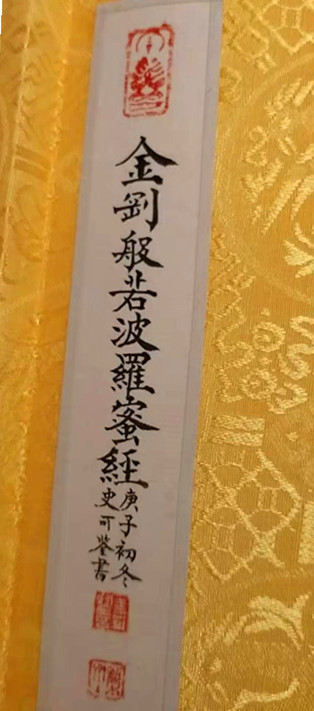 金剛般若波羅蜜經
庚子初冬
史可鉴書